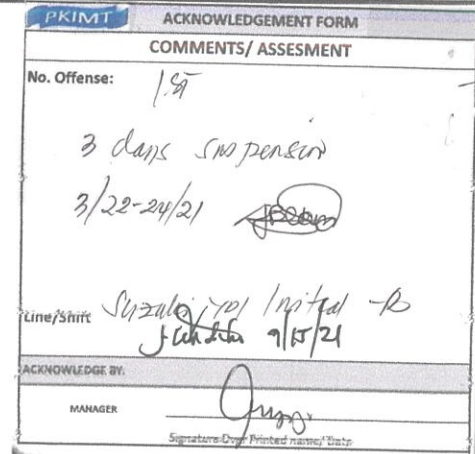 PKIMT ACKNOWLEDGEMENT FORM
COMMENTS/ ASSESMENT
No. Offense: 1st
3 days suspension
3/22-24/21
Line/Shift Suzuki YD1 Initial -B
9/15/21
ACKNOWLEDGE BY.
MANAGER
Signature Over Printed name/ Date